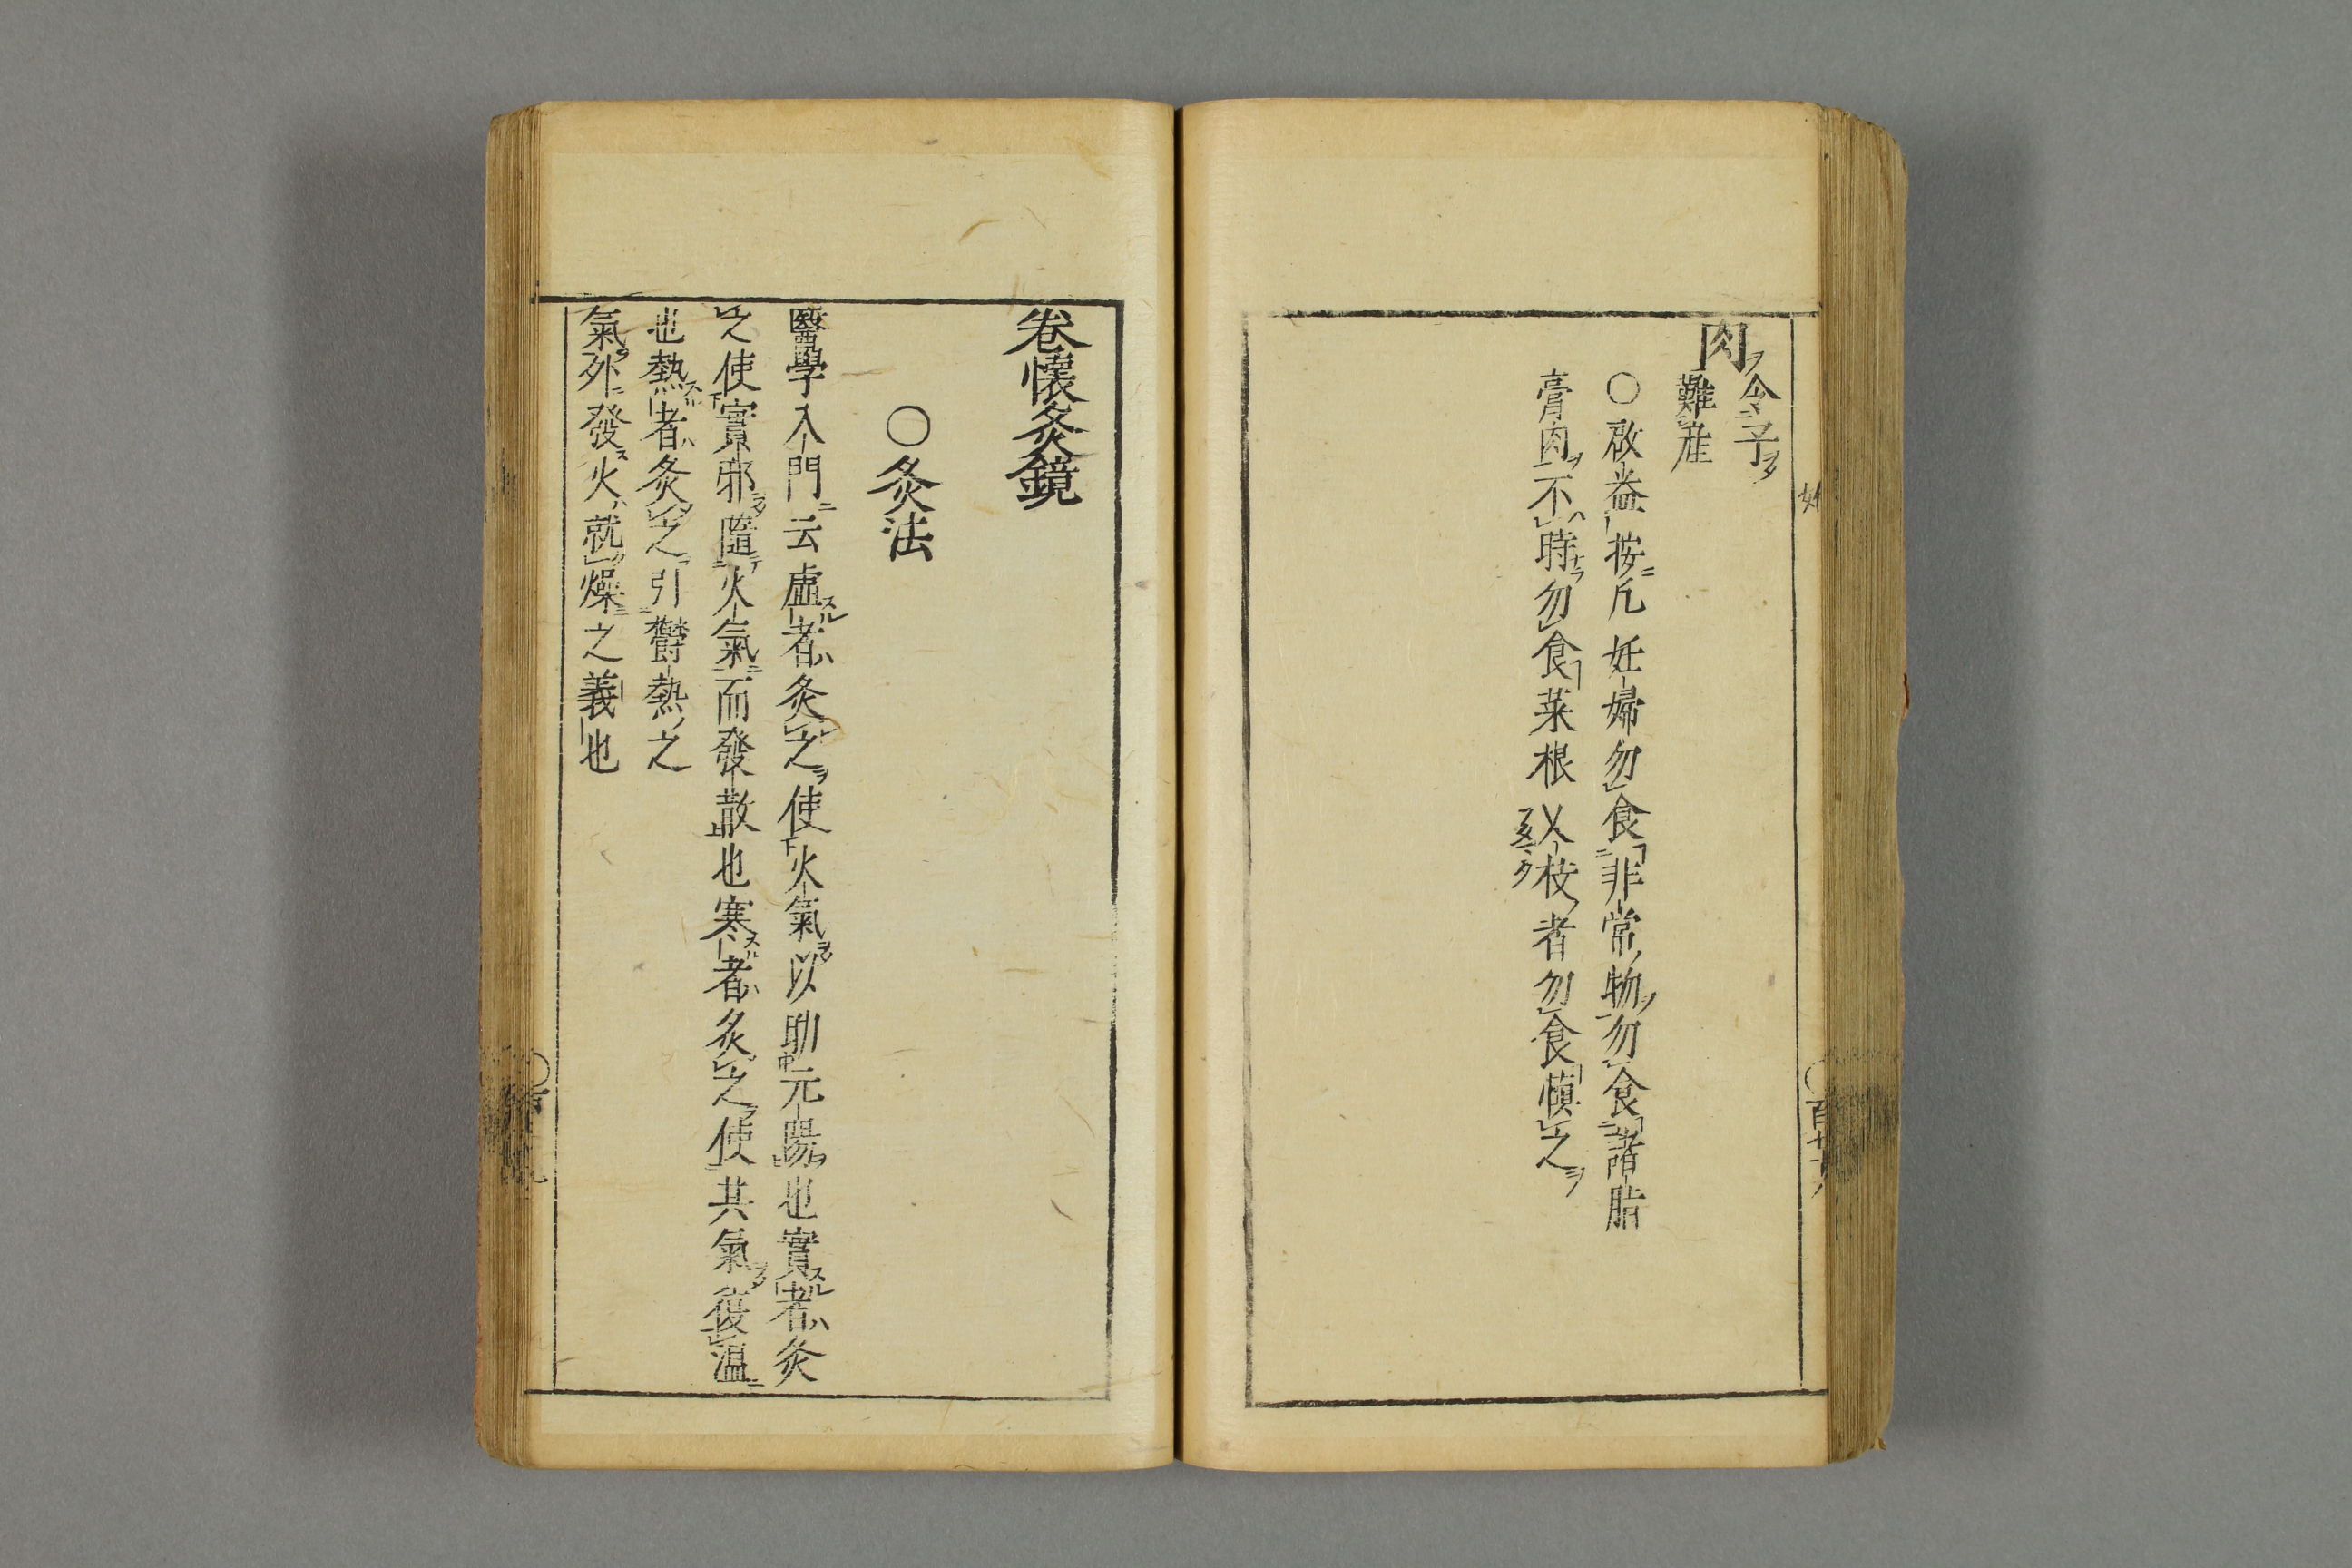 肉ヲ令子ヲ
難産
○啟益按凡妊婦勿食非常ノ物ヲ勿食諸脂
膏肉不時勿食菜根叉枝ノ者勿食慎之ヲ
卷懷灸鏡
○灸法
醫學入門ニ云虛スル者ハ灸之ヲ使火氣ヲ以助元陽ヲ也實スル者ハ灸
之使實邪ヲ隨火氣ニ而發散也寒スル者ハ灸之ヲ使其氣ヲ復温ニ
也熱スル者ハ灸之引欝熱ノ之
氣ヲ外ニ發ス火ハ就燥ニ之義也